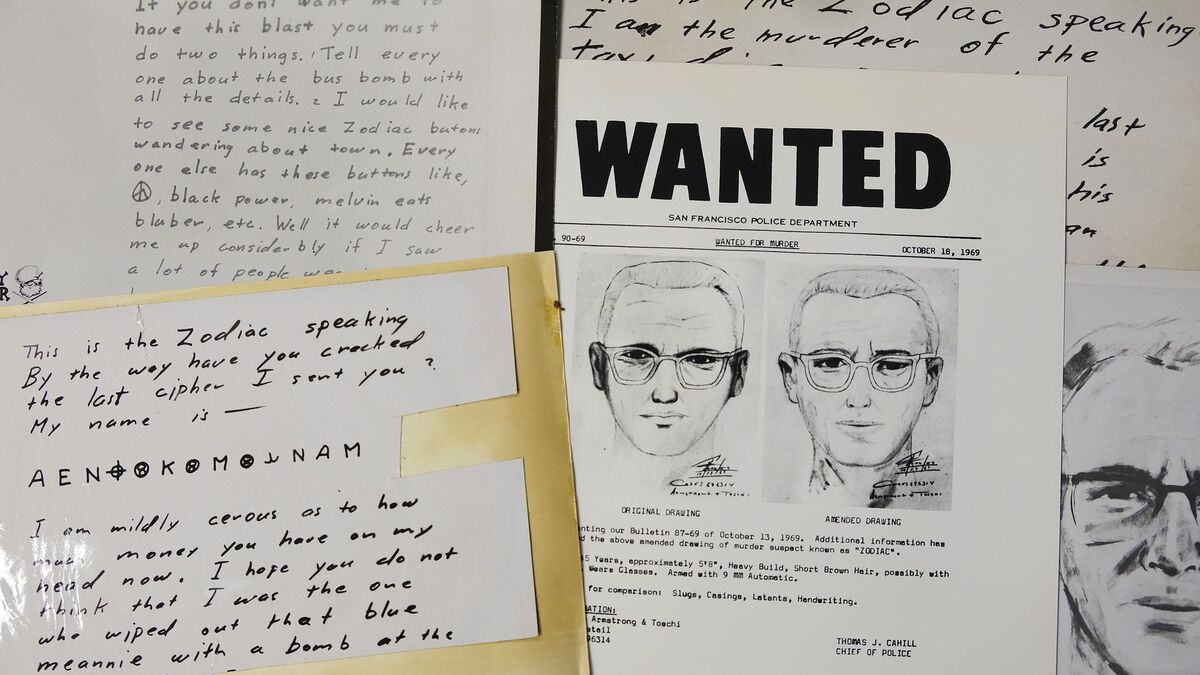 It you dont want me to
have this blast you must
do two things. 1 Tell every
one about the bus bomb with
all the details. 2 I would like
to see some nice Zodiac butons
wandering about town. Every
one else has these buttons like,
☮, black power, melvin eats
bluber, etc. Well it would cheer
me up considerbly if I saw
a lot of people
This is the Zodiac speaking
By the way have you cracked
the last cipher I sent you?
My name is —
A E N ⌖ ⊗ K ⊗ M ⊗ ⅃ N A M
I am mildly cerous as to how
much money you have on my
head now. I hope you do not
think that I was the one
who wiped out that blue
meannie with a bomb at the
the Zodiac speaking
I am the murderer of the
last
is
his
WANTED
SAN FRANCISCO POLICE DEPARTMENT
90-69 WANTED FOR MURDER OCTOBER 18, 1969
ORIGINAL DRAWING AMENDED DRAWING
our Bulletin 87-69 of October 13, 1969. Additional information has
the above amended drawing of murder suspect known as "ZODIAC".
5 Years, approximately 5'8", Heavy Build, Short Brown Hair, possibly with
Wears Glasses. Armed with 9 MM Automatic.
for comparison: Slugs, Casings, Latents, Handwriting.
Armstrong & Toschi
THOMAS J. CAHILL
CHIEF OF POLICE